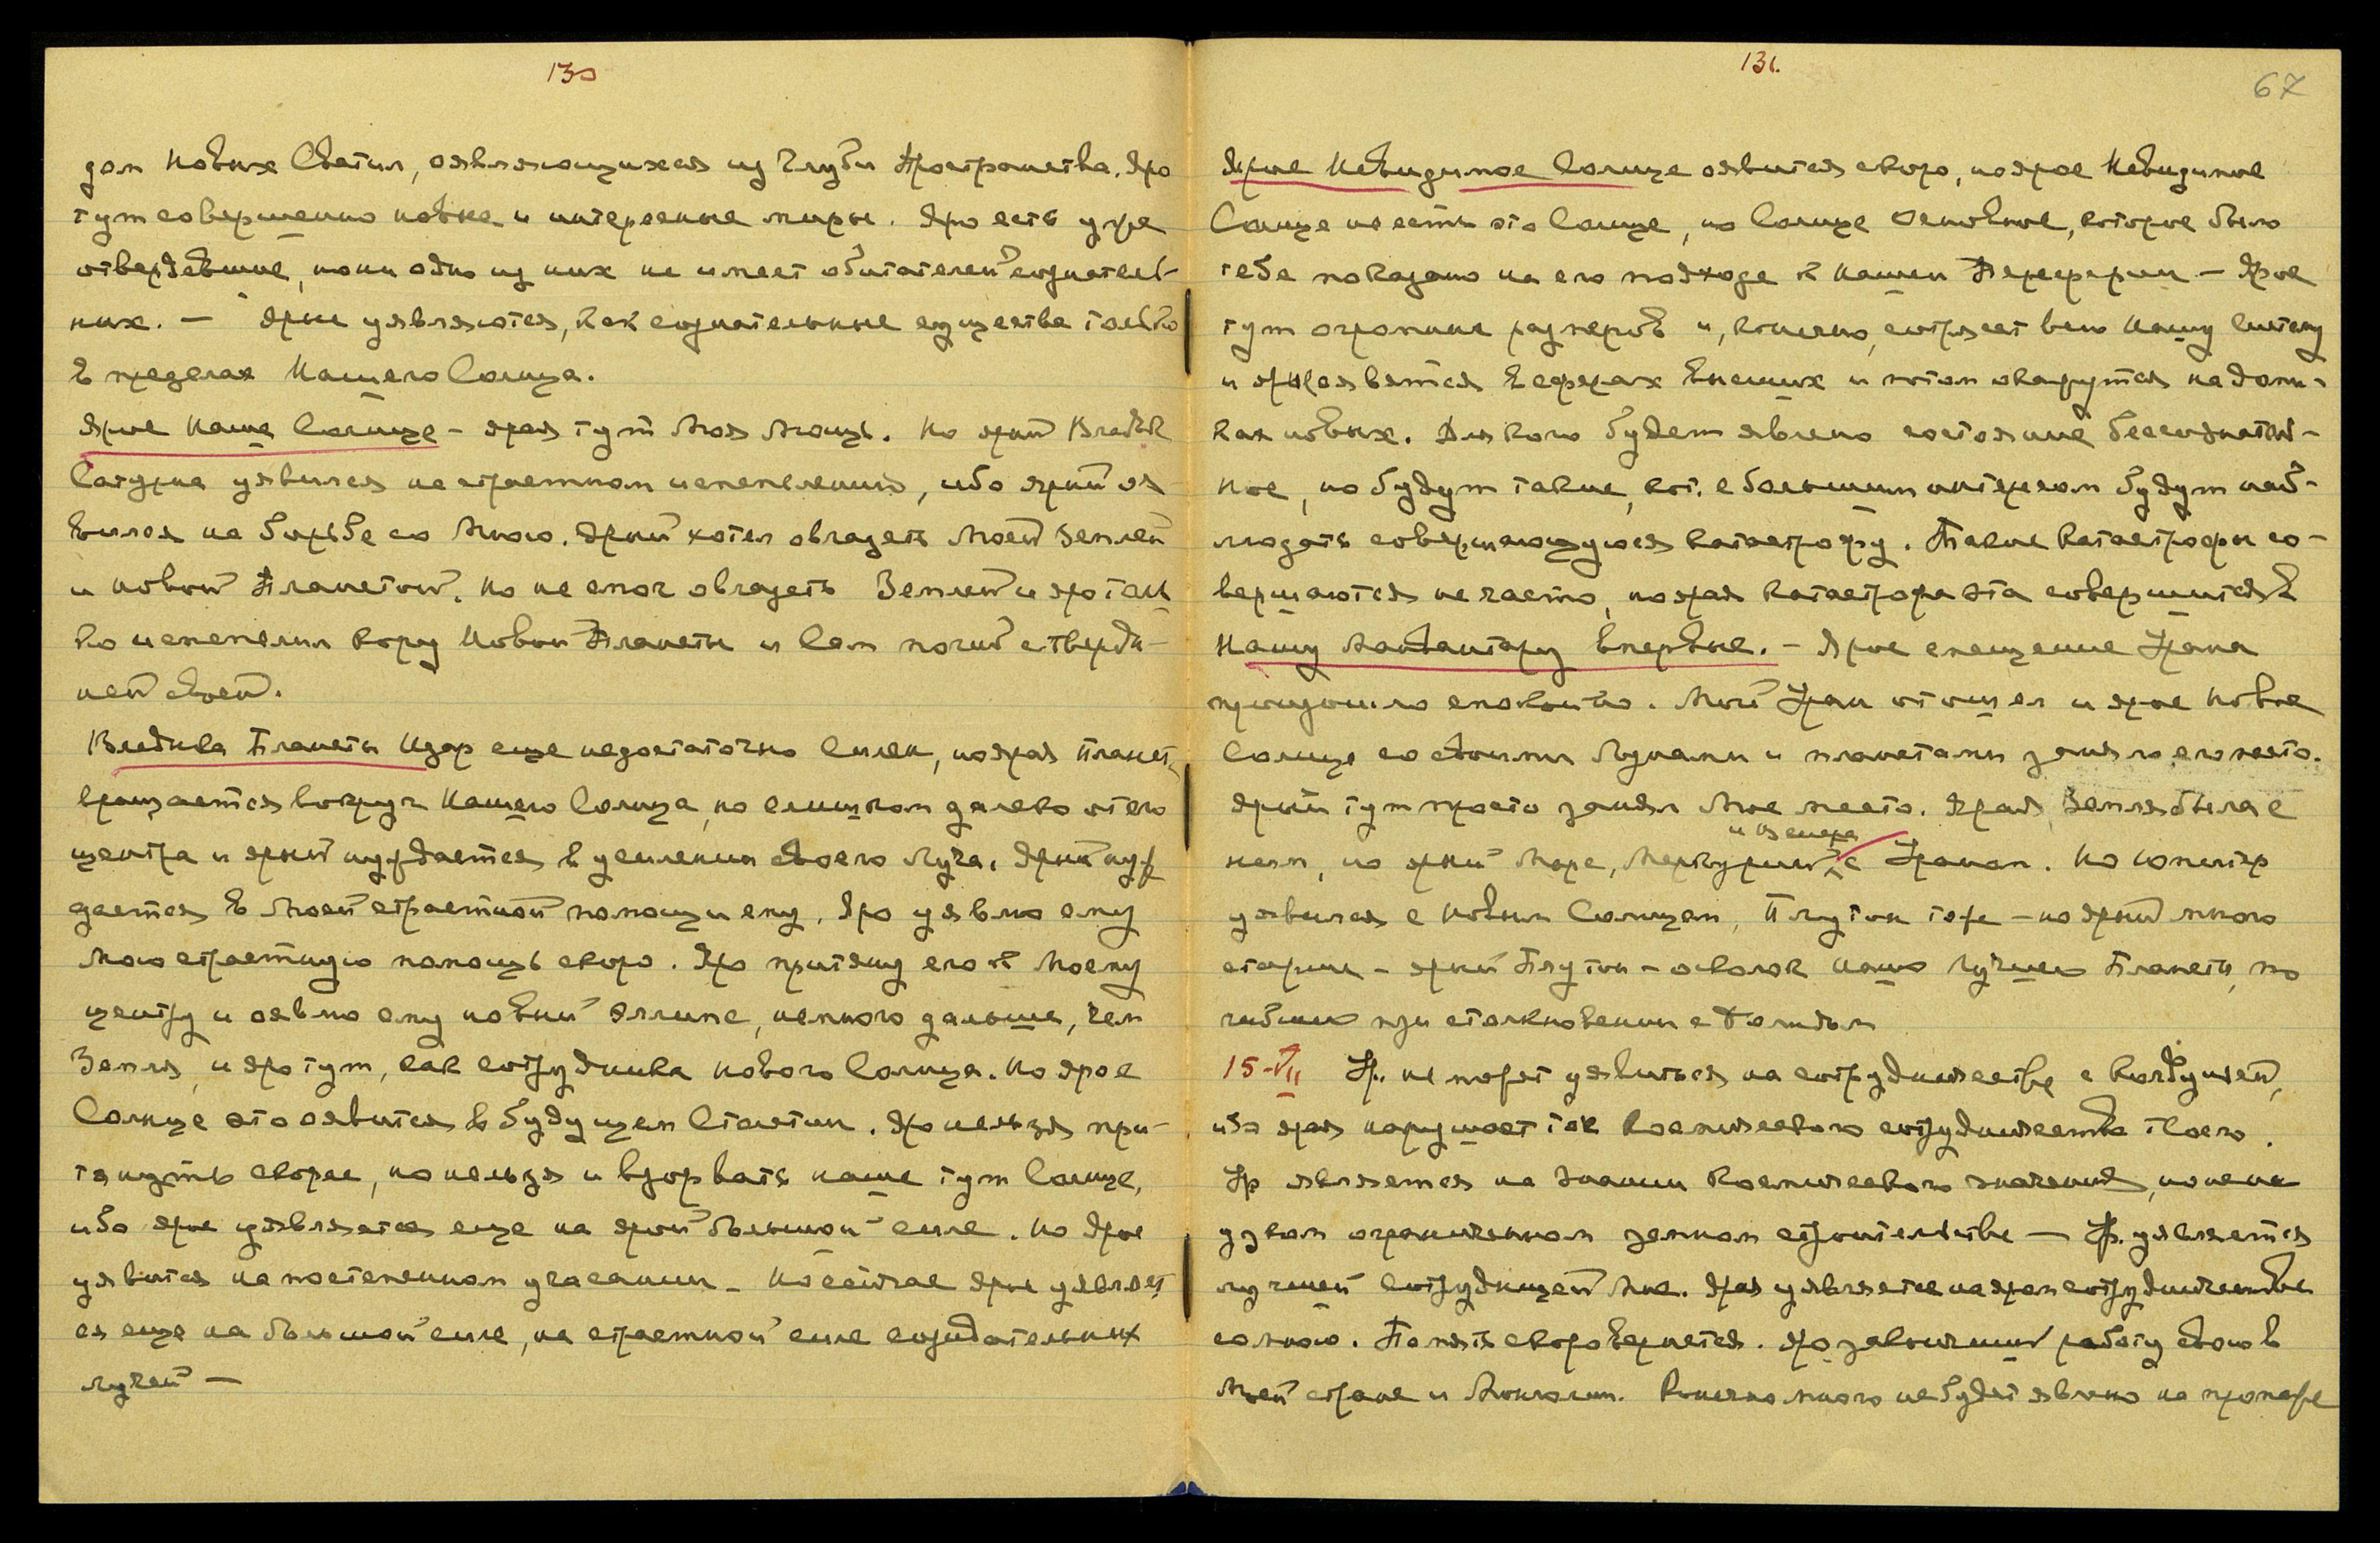 130
дом Новых Светил, оявляющихся из Глуби Пространства. Яро
тут совершенно новые и интересные миры. Яро есть уже
отвердевшие, но ни одно из них не имеет обитателей сознатель-
ных. — Ярые уявляются, как сознательные существа только
в пределах Нашего Солнца.
Ярое Наше Солнце – ярая тут Моя Мощь. Но ярый Владык
Сатурна уявился на страстном испепелении, ибо ярый оя
вился на борьбе со Мною. Ярый хотел овладеть Моей Землей
и новой Планетой. Но не смог овладеть Землей и яро толь
ко испепелил кору Новой Планеты и Сам погиб с тверды-
ней своей.
Владыка Планеты Изар еще недостаточно силен, но ярая планета
вращается вокруг Нашего Солнца, но слишком далеко от его
центра и ярый нуждается в усилении своего Луча. Ярый нуж
дается в Моей страстной помощи ему. Яро уявлю ему
Мою страстную помощь скоро. Яро притяну его к Моему
центру и оявлю ему новый эллипс, немного дальше, чем
Земля, и яро тут, как сотрудника нового Солнца. Но ярое
Солнце это оявится в будущем Столетии. Яро нельзя при-
тянуть скорее, но нельзя и взорвать наше тут Солнце,
ибо ярое уявляется еще на ярой большой силе. Но ярое
уявится на постепенном угасании – Но сейчас ярое уявляет
ся еще на большой силе, на страстной силе созидательных
лучей —
131.
67
Ярое Невидимое Солнце оявится скоро, но ярое Невидимое
Солнце не есть это Солнце, но Солнце Основное, которое было
тебе показано на его подходе к нашей Периферии – Ярое
тут огромных размеров и, конечно, сотрясет всю Нашу систему
и ярые оявятся в сферах внешних и потом окажутся на доми-
ках новых. Для кого будет явлено состояние бессознатель-
ное, но будут такие, кот. с большим интересом будут наб-
людать совершающуюся катастрофу. Такие катастрофы со-
вершаются не часто, но ярая катастрофа эта совершится в
Нашу Манвантару впервые. – Ярое смещение Урана
произошло спокойно. Мой Уран отошел и ярое Новое
Солнце со своими Лунами и планетами заняло его место.
Ярый тут просто занял Мое место. Ярая Земля была с
и Венера
нами, но ярый Марс, Меркурий с Ураном. Но Юпитер
уявился с Новым Солнцем, Плутон тоже – но ярый много
старше – ярый Плутон – осколок Нашей Лучшей Планеты, по
гибшей при столкновении с Болидом
15-VII Ур. не может уявиться на сотрудничестве с колдуньей,
ибо ярая нарушает ток Космического сотрудничества твоего.
Ур является на Знании Космического значения, но не на
узком ограниченном земном строительстве — Ур. уявляется
лучшей сотрудницей Мне. Ярая уявляется на яром сотрудничестве
со мною. скоро вернется. Яро закончит работу свою в
Моей стране и Монголии. Конечно много не будет явлено на продаже